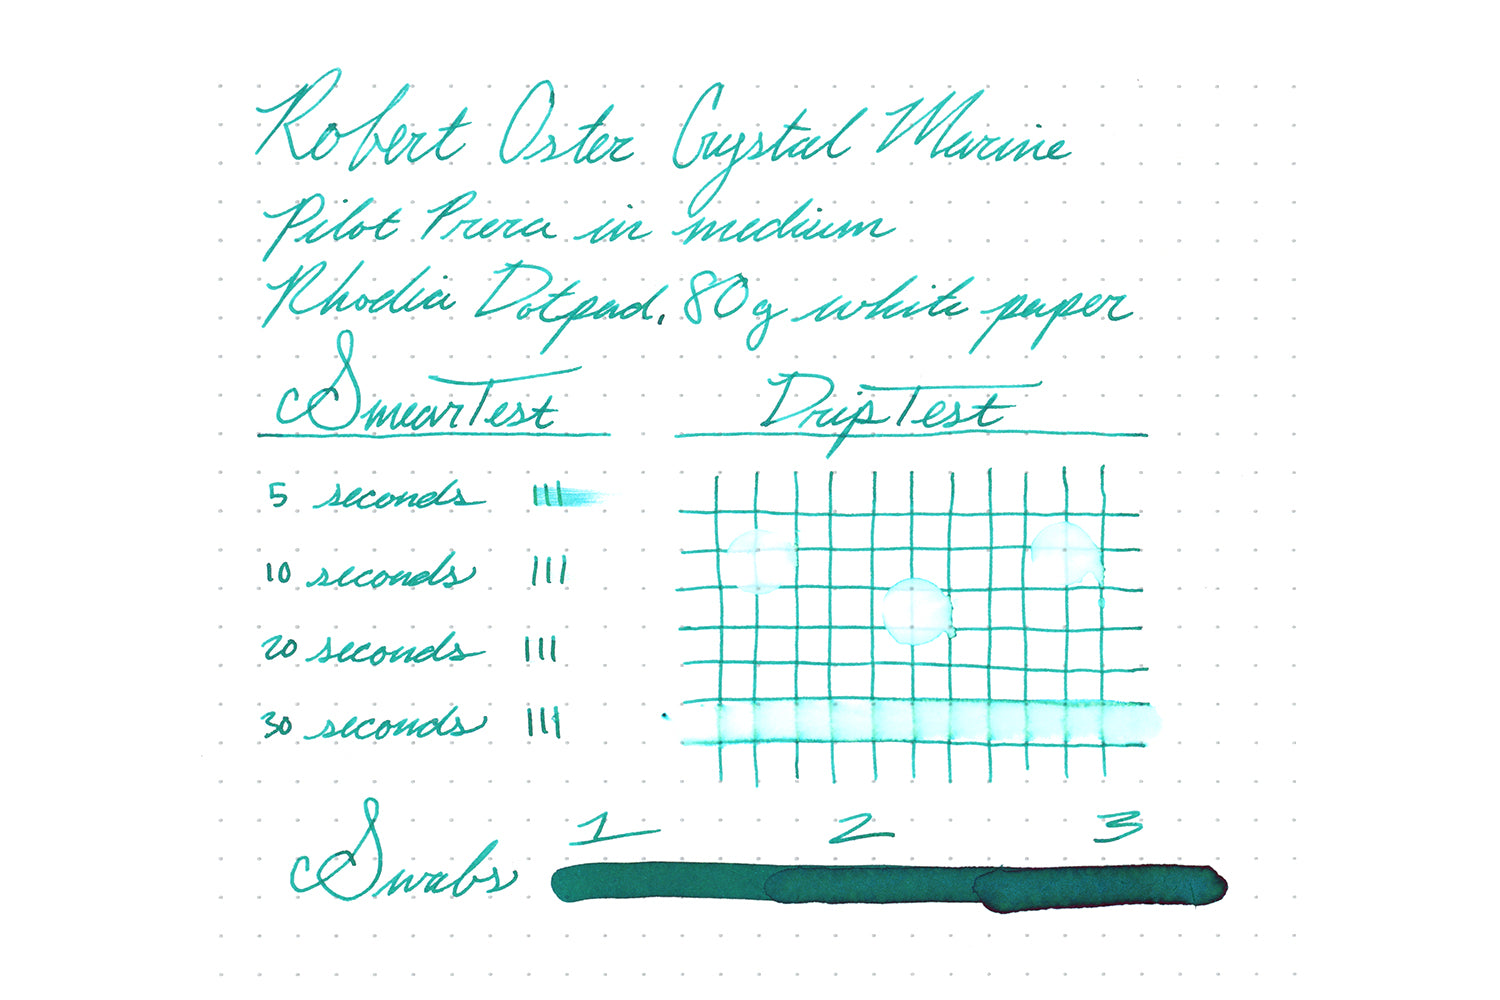 Robert Oster Crystal Marine
Pilot Prera in medium
Rhodia Dotpad, 80g white paper
Smear Test
Drip Test
5 seconds
10 seconds
20 seconds
30 seconds
Swabs
1 2 3